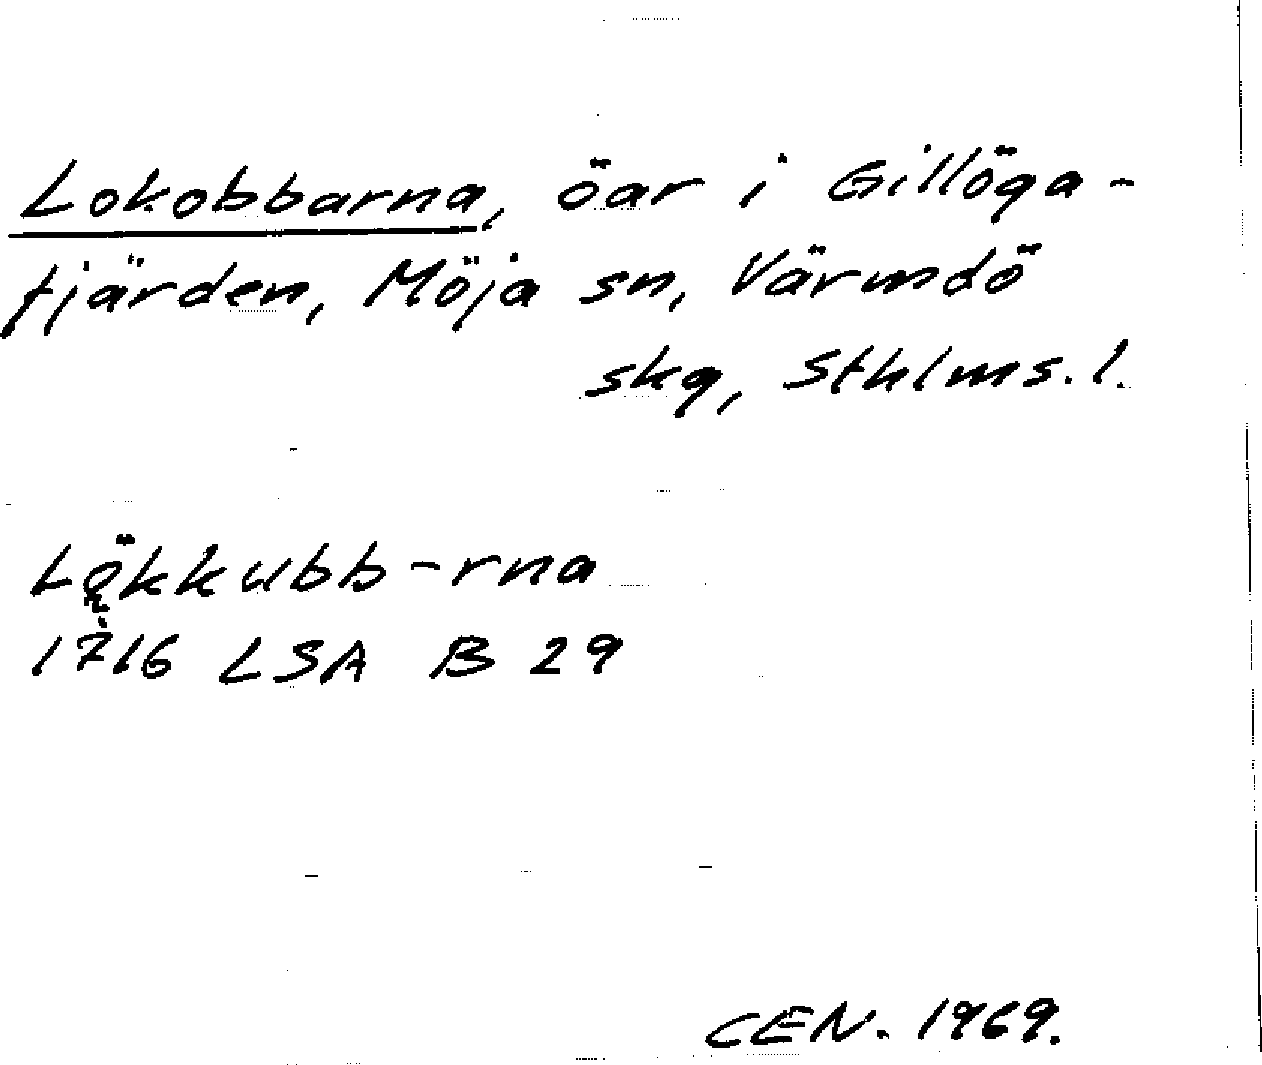 Lokobbarna, öar i Gillöga-
fjärden, Möja sn, Värmdö
skg, Sthlms. l.
Lö̜kkubb-rna
1716 LSA B 29
CEN. 1969.